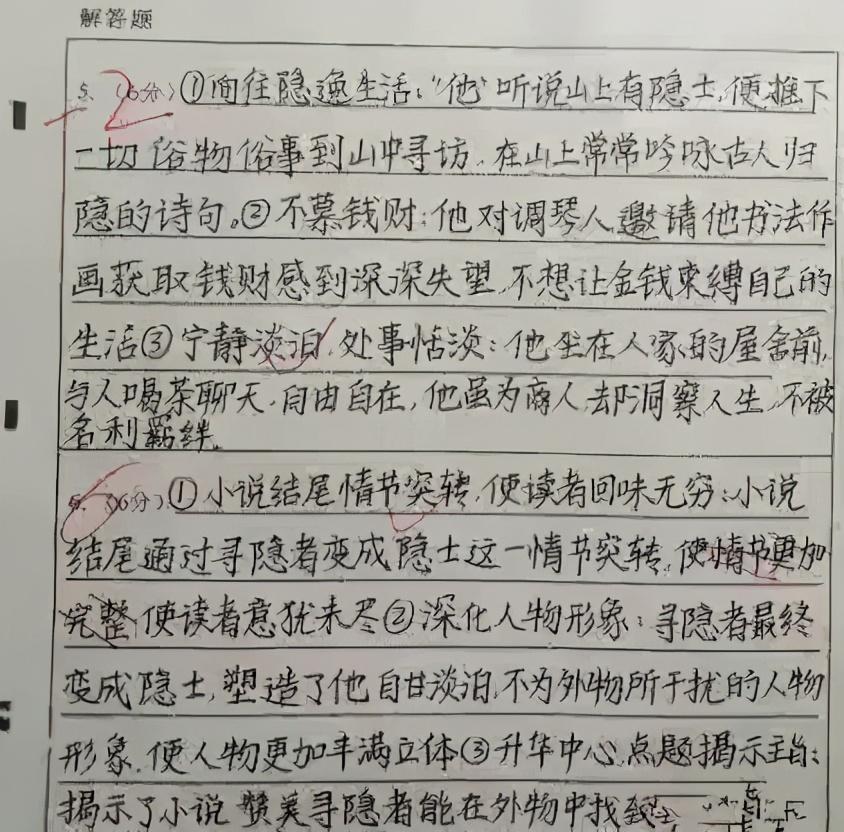 解答题
5. (6分) ①向往隐逸生活:“他”听说山上有隐士,便推下
一切俗物俗事到山中寻坊.在山上常常吟咏古人归
隐的诗句。②不慕钱财:他对调琴人邀请他书法作
画获取钱财感到深深失望,不想让金钱束缚自己的
生活③宁静淡泊,处事恬淡:他坐在人家的屋舍前,
与人喝茶聊天,自由自在,他虽为商人,却洞察人生,不被
名利羁绊.
2
(6分).①小说结尾情节突转,使读者回味无穷:小说
结尾通过寻隐者变成隐士这一情节突转,使情节更加
完整使读者意犹未尽②深化人物形象:寻隐者最终
变成隐士,塑造了他自甘淡泊,不为外物所干扰的人物
形象,使人物更加丰满立体③升华中心,点题揭示主旨:
揭示了小说赞美寻隐者能在外物中找到